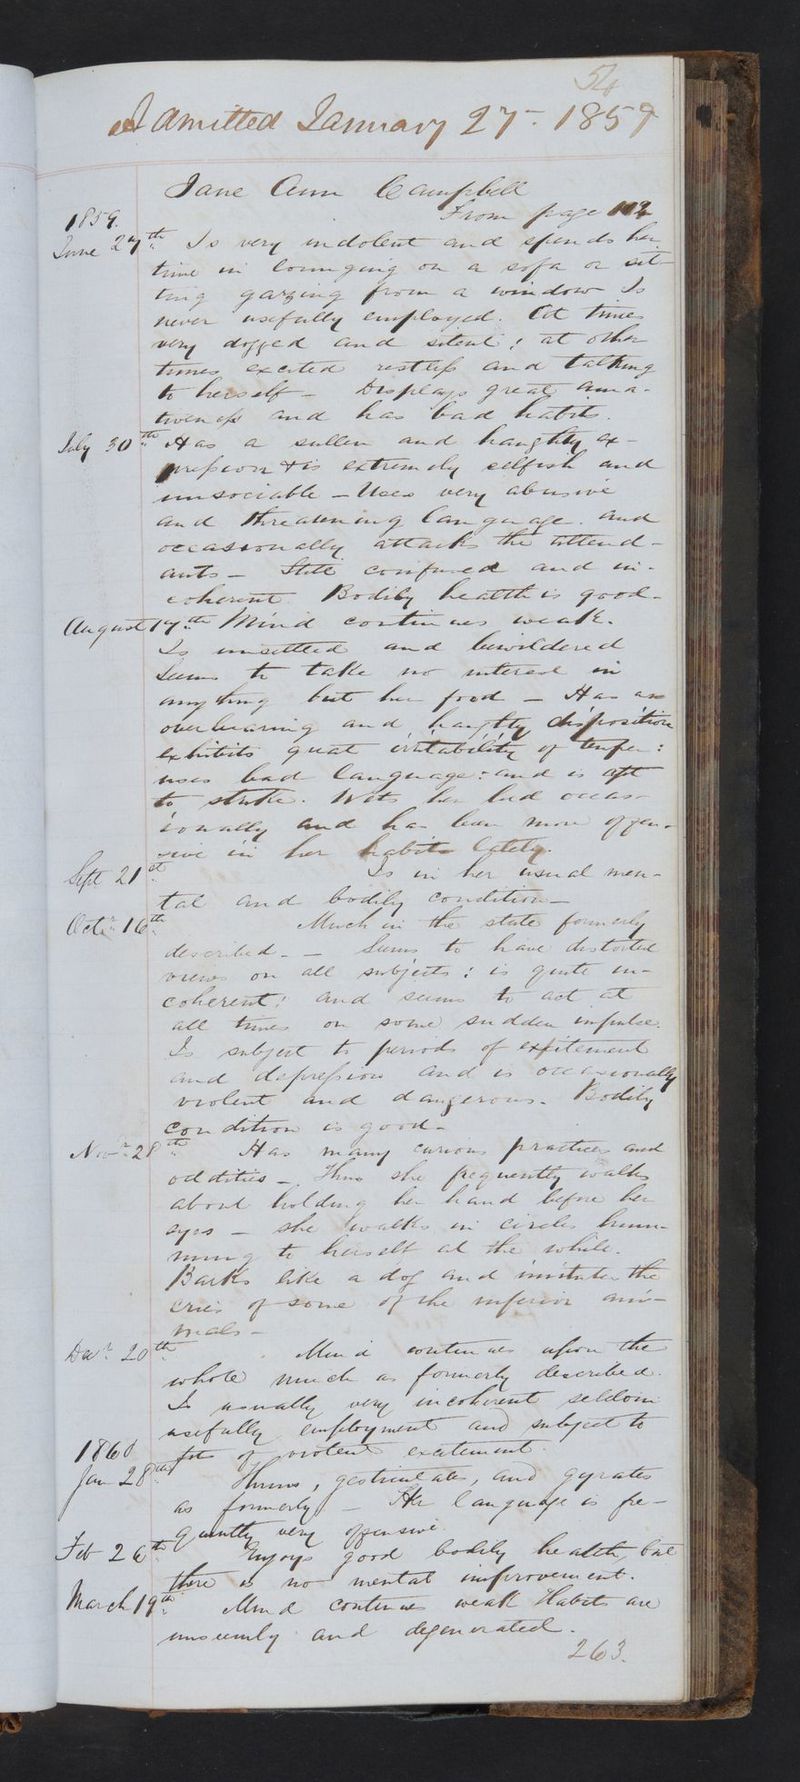 54
Admitted January 27- 1859
Jane Ann Campbell
From page 112
1859.
June 27th Is very indolent and spends her
time in lounging on a sofa or sit-
ting gazing from a window Is
never usefully employed. At times
very dogged and silent; at other
times excited restless and talking
to herself - Displays great ama-
tiveness and has bad habits.
July 30th Has a sullen and haughty ex-
pression & is extremely selfish and
unsociable - Uses very abusive
and threatening language. and
occasionally attacks the attend-
ants - Still confused and in-
coherent. Bodily health is good-
August 17th Mind continues weak.
Is unsettled and bewildered
Seems to take no interest in
anything but her food - Has an
overbearing and haughty disposition
exhibits great irritability of temper:
uses bad language: and is apt
to strike. Wets her bed occas-
ionally and has been more offen-
sive in her habits lately.
Sept 21st Is in her usual men-
tal and bodily condition-
Octr. 16th Much in the state formerly
described. - Seems to have distorted
views on all subjects: is quite in-
coherent: and seems to act at
all times on some sudden impulse.
Is subject to periods of excitement
and depression and is occasionally
violent and dangerous- Bodily
condition is good-
Novr 28th Has many curious practices and
oddities - Thus she frequently walks
about holding her hand before her
eyes - she walks in circles hum-
ming to herself all the while.
Barks like a dog and imitates the
cries of some of the inferior ani-
mals-
Decr. 20th Mind continues upon the
whole much as formerly described.
Is usually very incoherent seldom
usefully employment and subject to
fits of violent excitement.
1860
Jan 28th Hums, gesticulates, and gyrates
as formerly - Her language is fre-
quently very offensive.
Feb 26th Enjoys good bodily health, but
there is no mental improvement.
March 19th Mind continues weak Habits are
unseemly and degenerated.
263.